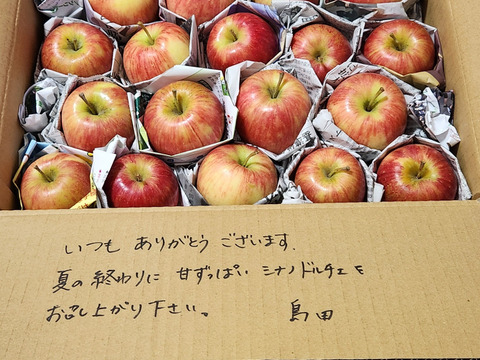 いつも ありがとう ございます.
夏の終わりに 甘ずっぱい シナノドルチェを
お召し上がり下さい。 島田